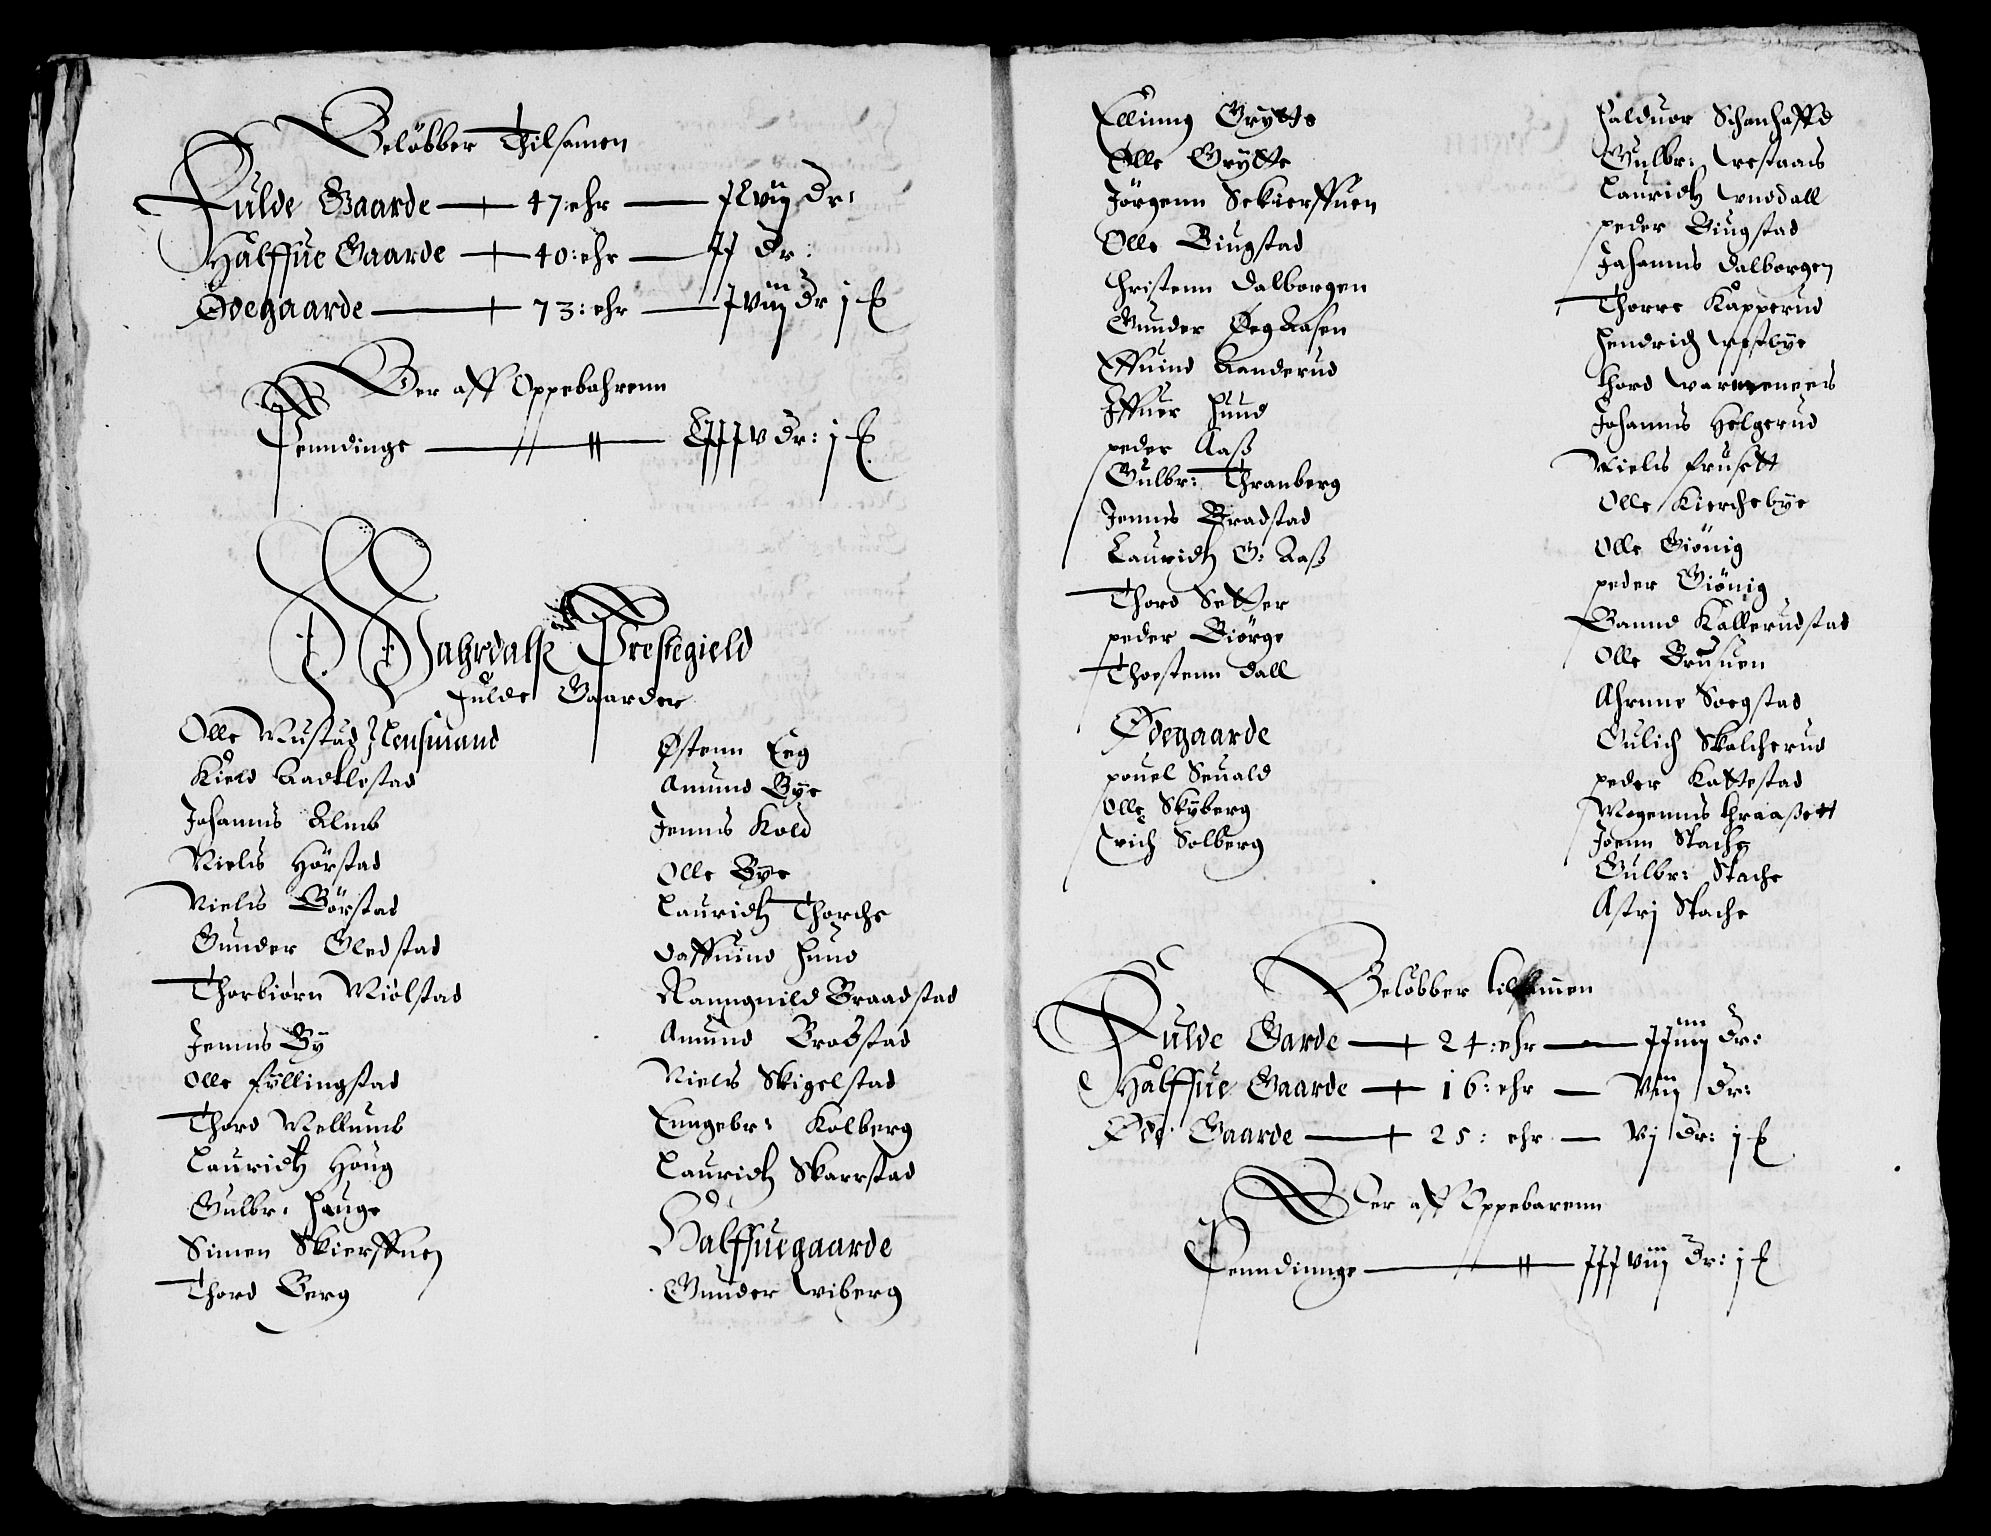 Beløbber Thilsamen
Fulde Gaarde — 47: ehr — xlvij Dr:
Halffue Gaarde — 40: ehr — xx Dr:
Ødegaarde — 73: ehr — xviij Dr j
Der aff Oppebahrenn
Penndinge — Dr: j
Wahrdalß Prestegield
Fulde Gaarder
Olle Mustad Lensmand
Kield Aadelstad
Johanns Almb
Niels Hørstad
Niels Børstad
Gunder Gledstad
Thorbiørn Miølstad
Jenns By
Olle Fyllingstad
Thord Mellumb
Lauridtz Houg
Gulbr: Hauge
Simen Skierffuen
Thord Berg
Østenn Eeg
Amund Bye
Jenns Kold
Olle Bye
Lauridtz Thorche
Daffuind Hund
Ranngnild Braadstad
Amund Brodstad
Niels Skigelstad
Enngebr: Kolberg
Lauridtz Skarrstad
Halffuegaarde
Gunder Wiberg
Ellinng Grytte
Olle Grytte
Jørgenn Sekierffuen
Olle Biugstad
Christenn Dalborgen
Gunder Øeg Aasen
Effuind Aanderud
Iffuer Hund
peder Aaß
Gulbr: Thranberg
Jenns Bradstad
Lauridtz G: Aaß
Thord Setter
peder Biørge
Thostenn Dall
Ødegaarde
pouel Seuald
Olle Skyberg
Erich Solberg
Halduor
Gulbr: Westaas
Lauridtz Unddall
peder Biugstad
Johanns Dalborgen
Thorre Kapperud
Hendrich Westbye
Thord
Johanns Helgerud
Niels Frusett
Olle Kierchebye
Olle Giønig
peder Giønig
Gannd Kallerudstad
Olle Brusuen
Ahrnne Soegstad
Gulich Skolcherud
peder Kattestad
Mogenns Thraaßett
Joenn Stache
Gulbr: Stache
Astrj Stache
Beløbber tilsamen
Fulde Garde — 24: ehr — xxiiij Dr:
Halffue Gaarde — 16: ehr — viij Dr:
Øde Gaarde — 25: ehr — vj Dr: j
Der aff Oppebarenn
Penndinnge — xxxviij Dr: j